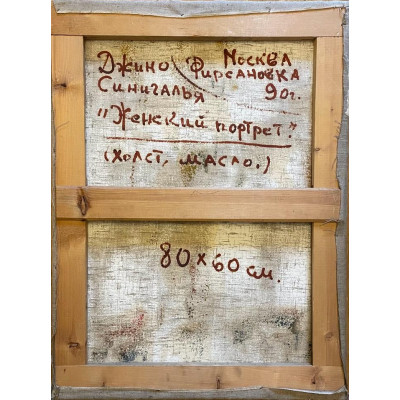 Джино Москва
Синигалья Фирсановка
90г.
"Женский портрет"
(холст, масло.)
80 х 60 см.